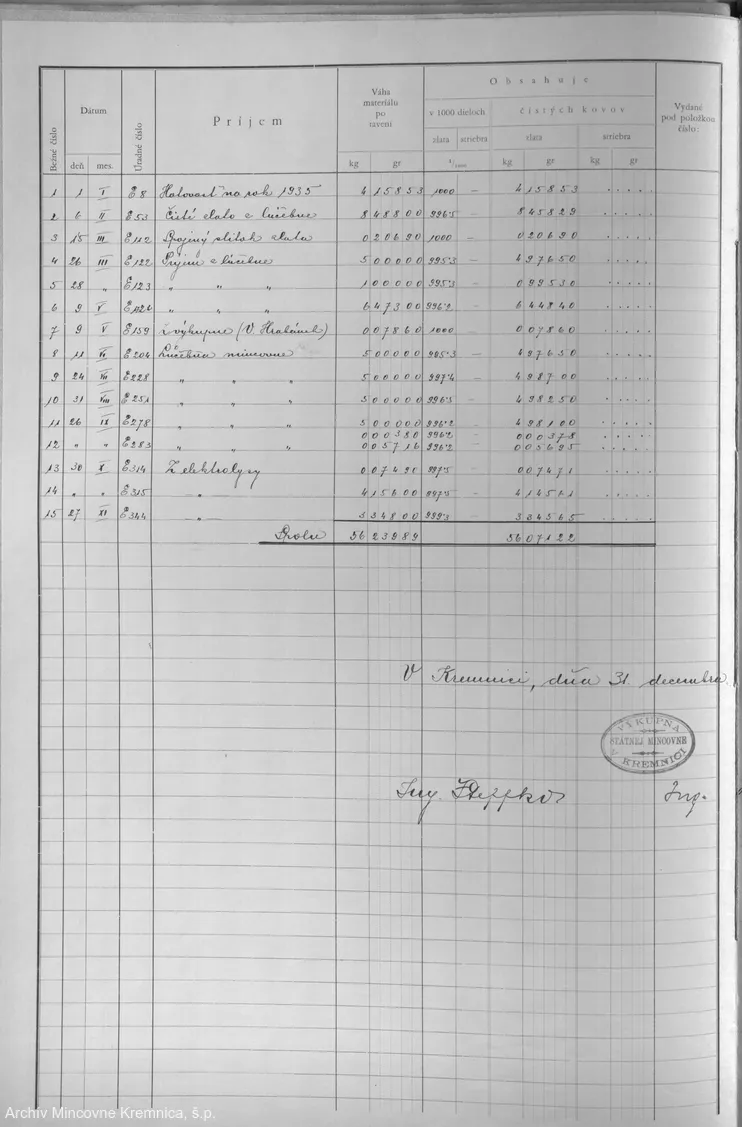 Obsahuje
Bežné číslo Dátum Úradné číslo Príjem Váha materiálu po tavení v 1000 dieloch čistých kovov Vydané pod položkou číslo:
zlata striebra zlata striebra
deň mes. kg gr 1/1000 kg gr kg gr
1 1 I E8 Hotovosť na rok 1935 4 15853 1000 – 4 15853 . . . . .
2 6 II E53 Čisté zlato z lúčebne 8 48800 996·5 – 8 45829 . . . . .
3 15 III E112 Spojený slitok zlata 0 20690 1000 – 0 20690 . . . . .
4 26 III E122 Príjem z lúčebne 5 00000 995·3 – 4 97650 . . . . .
5 28 „ E123 „ „ „ 1 00000 995·3 – 0 99530 . . . . .
6 9 V „ „ „ 6 47300 996·2 – 6 44840 . . . . .
7 9 V E159 Z výkupne (V. ) 0 07860 1000 – 0 07860 . . . . .
8 11 VI E204 Lúčebňa mincovne 5 00000 995·3 – 4 97650 . . . . .
9 24 VII E228 „ „ „ 5 00000 997·4 – 4 98700 . . . . .
10 31 VIII E251 „ „ „ 5 00000 996·5 – 4 98250 . . . . .
11 26 IX E278 „ „ „ 5 00000 996·2 – 4 98100 . . . . .
0 00380 996·2 0 00378
12 „ „ E283 „ „ „ 0 05716 996·2 – 0 05695 . . . . .
13 30 X E314 Z elektrolyzy 0 07490 997·5 – 0 07471 . . . . .
14 „ „ E315 „ 4 15600 997·5 – 4 14561 . . . . .
15 27 XI E344 „ 3 34800 999·3 – 3 34565 . . . . .
Spolu 56 23989 56 07122
V Kremnici, dňa 31. decembra
VÝKUPŇA
ŠTÁTNEJ MINCOVNE
V KREMNICI
Ing. Steffko Ing.
Archív Mincovne Kremnica, š.p.